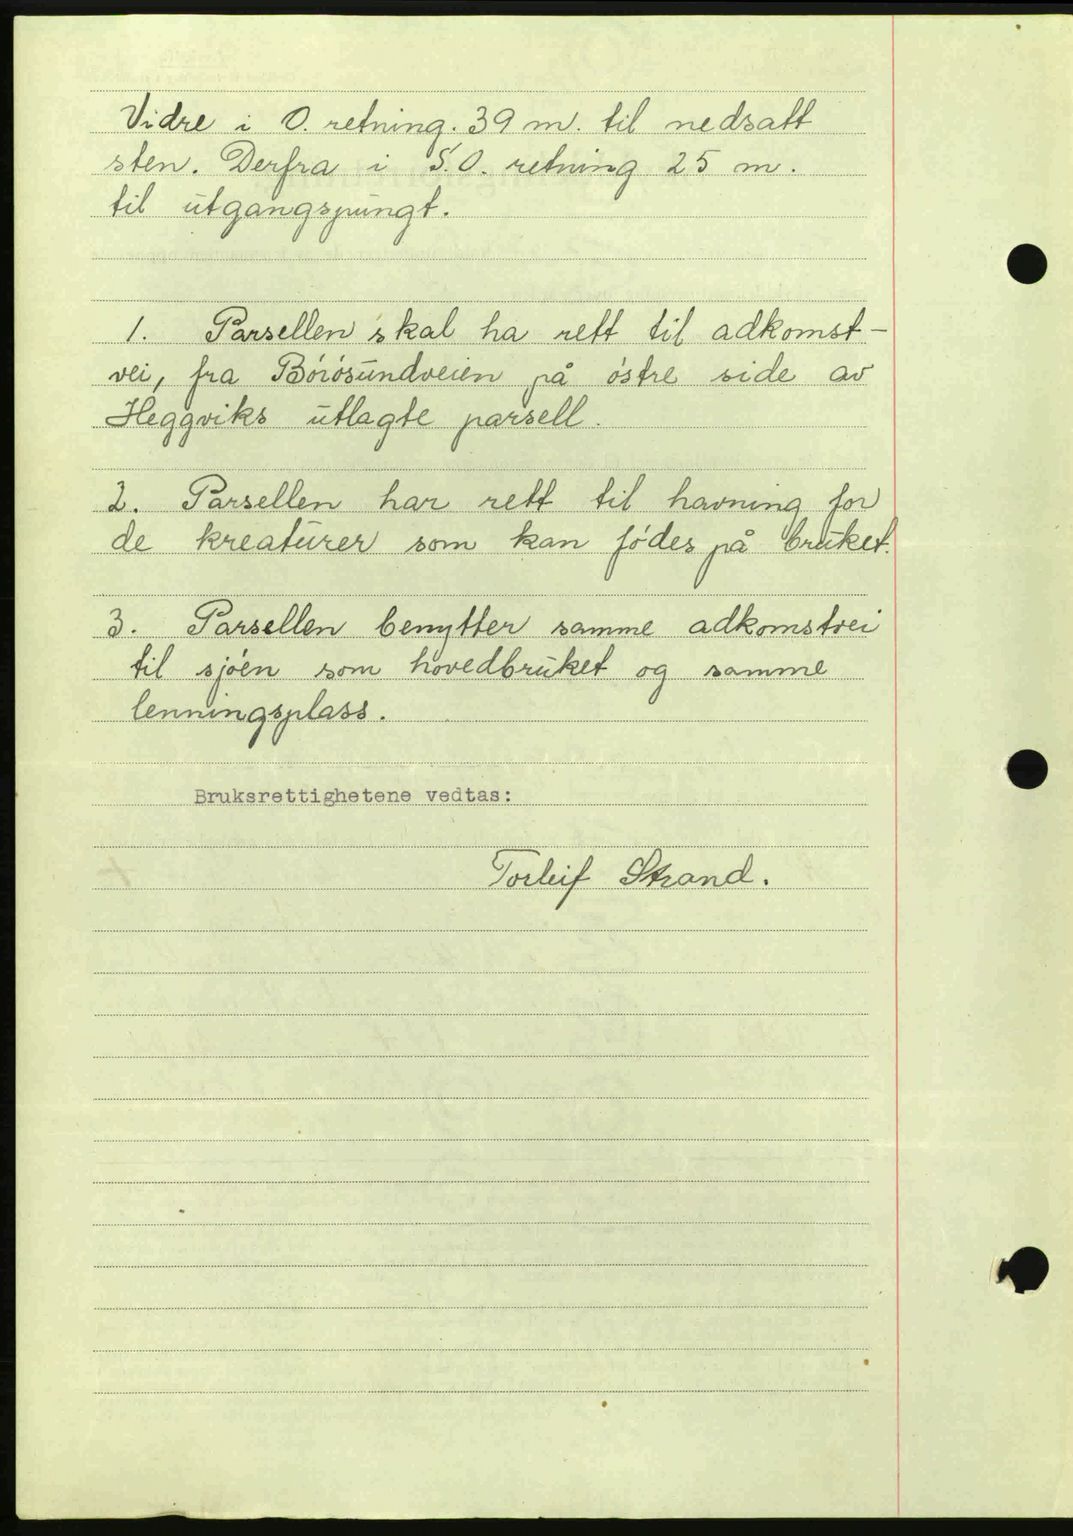 Vidre i O. retning. 39 m. til nedsatt
sten. Derfra i S.O. retning 25 m.
til utgangspungt.
1. Parsellen skal ha rett til adkomst-
vei, fra Börösundveien på östre side av
Heggviks utlagte parsell.
2. Parsellen har rett til havning for
de kreaturer som kan födes på bruket.
3. Parsellen benytter samme adkomstvei
til sjöen som hovedbruket og samme
lenningsplass.
Bruksrettighetene vedtas:
Torleif Strand.